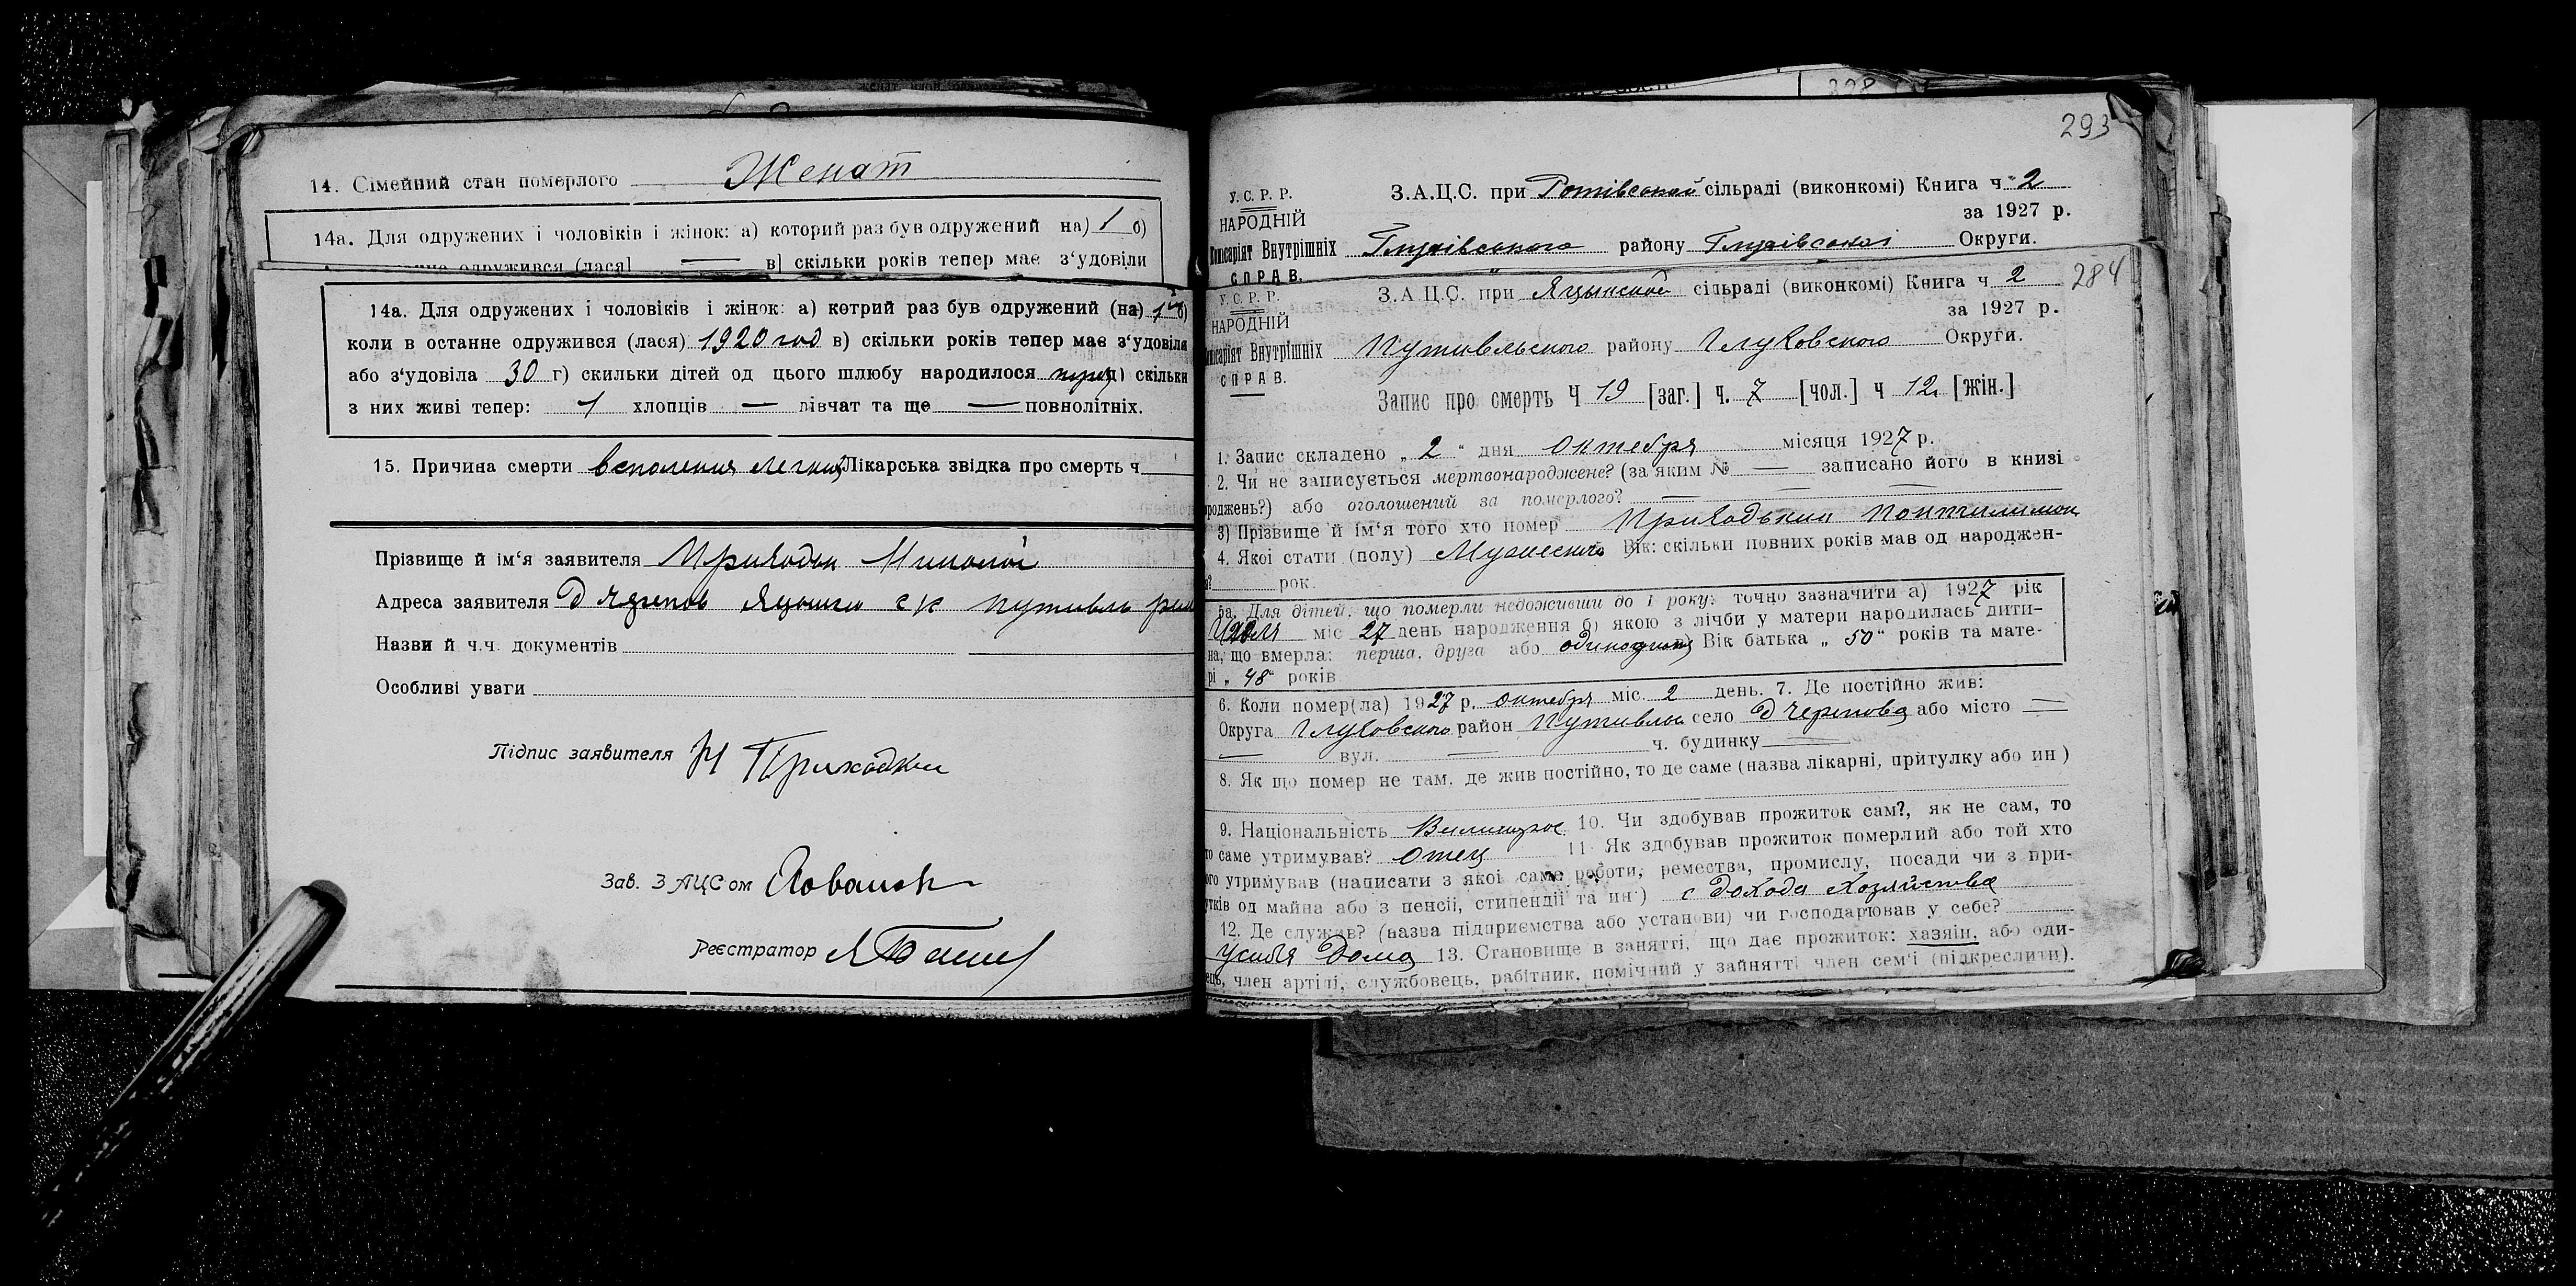 14. Сімейний стан померлого Женат
14а. Для одружених і чоловіків і жінок: а) которий раз був одружений на) 1 б)
одружився (лася) — в] скільки років тепер має з‘удовіли
14а. Для одружених і чоловіків і жінок: а) котрий раз був одружений (на) 1й б)
коли в останне одружився (лася) 1920 год в) скільки років тепер має з‘удовіла
або з‘удовіла 30 г) скильки дітей од цього шлюбу народилося д) скільки
з них живі тепер: 1 хлопців — дівчат та ще — повнолітніх.
15. Причина смерти Лікарська звідка про смерть ч
Прізвище й ім‘я заявителя Приходьк Николай
Адреса заявителя д
Назви й ч.ч. документів
Особливі уваги
Підпис заявителя Н Приходкин
Зав. ЗАЦСом
Реєстратор
293
У. С. Р. Р.
З.А.Ц.С. при сільраді (виконкомі) Книга ч 2
НАРОДНІЙ
за 1927 р.
Комісаріят Внутрішніх Глухівського району Глухівської Округи.
СПРАВ.
У. С. Р. Р.
З.А.Ц.С. при Яцынской сільраді (виконкомі) Книга ч 2 284
НАРОДНІЙ
за 1927 р.
Комісаріят Внутрішніх Путивльского району Глуховского Округи.
СПРАВ.
Запис про смерть Ч 19 [заг.] ч. 7 [чол.] ч 12 [жін.]
1. Запис складено „ 2 “ дня октебря місяця 1927 р.
2. Чи не записується мертвонароджене? (за яким № — записано його в книзі
роджень?) або оголошений за померлого? —
3) Прізвище й ім‘я того хто помер Приходькин Понтилимон
4. Якої стати (полу) Мужеского Вік: скільки повних років мав од народжен-
рок.
5а. Для дітей, що померли недоживши до 1 року: точно зазначити а) 1927 рік
міс 27 день народження б) якою з лічби у матери народилась дити-
на, що вмерла: перша, друга або Вік батька „ 50 “ років та мате-
рі „ 48 “ років
6. Коли помер(ла) 1927 р. октебря міс. 2 день. 7. Де постійно жив:
Округа Глуховского район Путивльс село д Черепова або місто —
— вул. — ч. будинку —
8. Як що помер не там, де жив постійно, то де саме (назва лікарні, притулку або ин )
9. Національність Великорос 10. Чи здобував прожиток сам?, як не сам, то
то саме утримував? Отец 11 Як здобував прожиток померлий або той хто
ого утримував (написати з якої саме роботи, ремества, промислу, посади чи з при-
утків од майна або з пенсії, стипендії та ин·) с дохода хозяйства
12. Де служив? (назва підприємства або установи) чи господарював у себе?
усибя дома 13. Становище в занятті, що дає прожиток: хазяїн, або оди-
ець, член артілі, службовець, рабітник, помічний у зайнятті член сем‘ї (підкреслити).